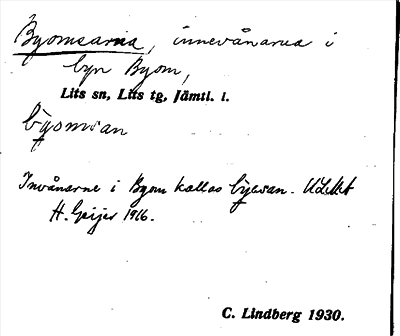 Byomsarna, innevånarna i
byn Byom,
Lits sn, Lits tg, Jämtl. l.
byomsan
Invånarne i Byom kallas byesan.
H. Geijer 1916.
C. Lindberg 1930.